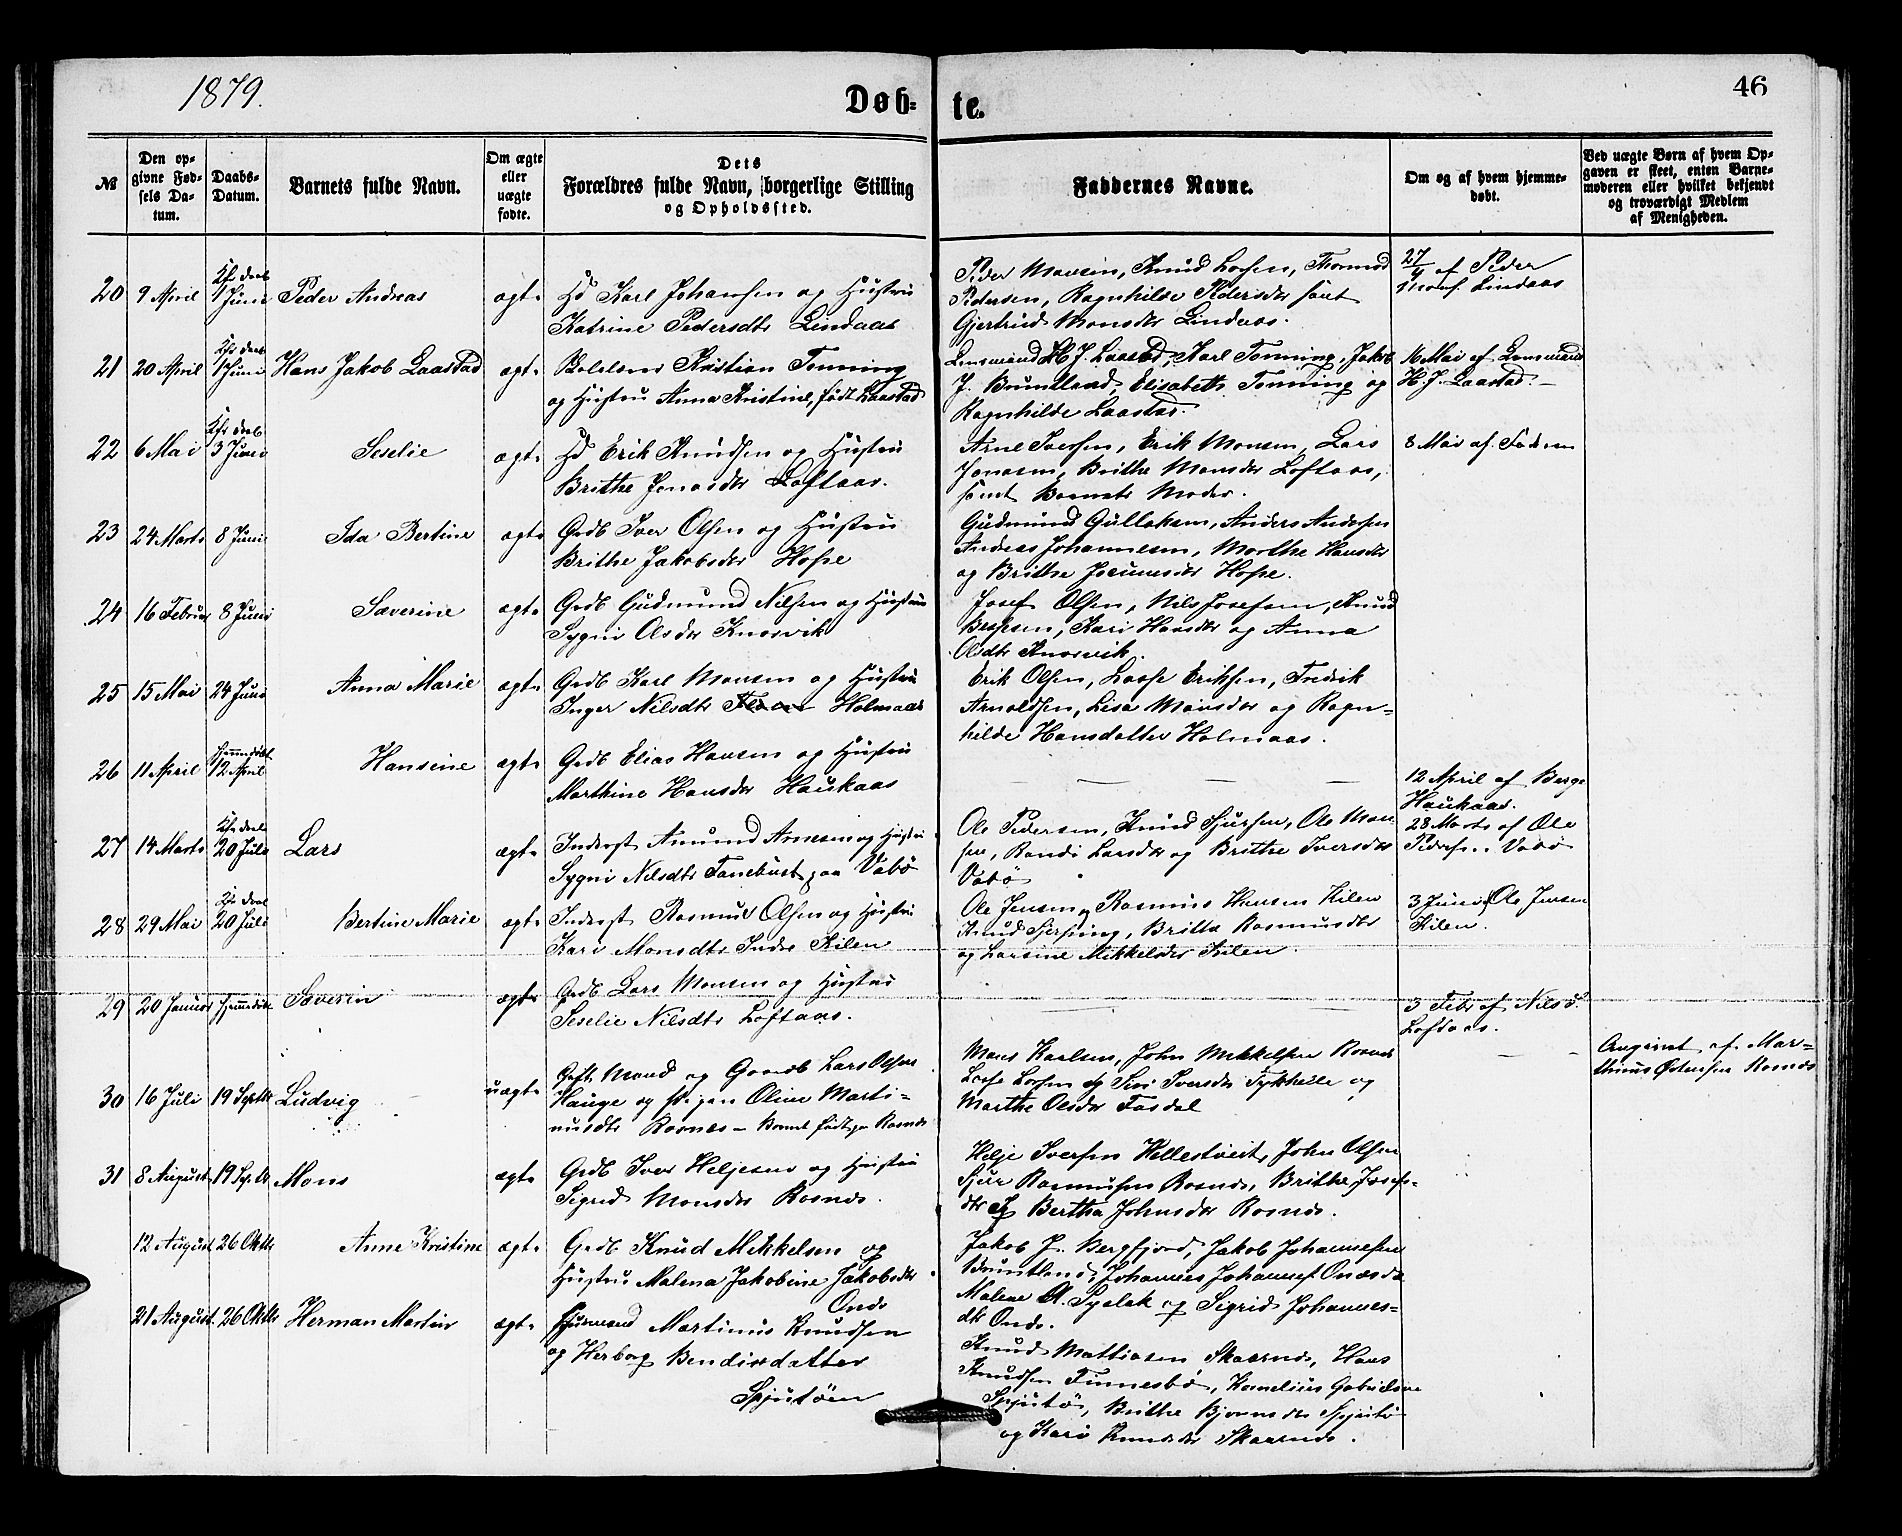 1879.
Døb-
te.
46
№
Den op-
givne Fød-
sels Da-
tum.
Daabs-
Datum.
Barnets fulde Navn.
Om ægte
eller
uægte
fødte.
Dets
Forældres fulde Navn, borgerlige Stilling
og Opholdssted.
Faddernes Navne.
Om og af hvem hjemme-
døbt.
Ved uægte Børn af hvem Op-
gaven er skeet, enten Barne-
moderen eller hvilket bekjendt
og troværdigt Medlem
af Menigheden.
20 9 April 1 Juni Peder Andreas ægte Karl Johansen og Hustru
Katrine Pedersdtr Lindaas
Peder Monsen, Knud Larsen, Thormod
Pedersen, Ragnhilde Pedersdtr samt
Gjertrud Monsdtr Lindaas.
27/4 af Peder
Mons. Lindaas
21 20 April 1 Juni Hans Jakob Laastad ægte Kristian Tonning
og Hustru Anna Kristine, født Laastad
Lensmand H. J. Laastad, Karl Tonning, Jakob
J. Bruntland, Elisabeth Tonning og
Ragnhilde Laastad.
16 Mai af Lensmand
H. J. Laastad.
22 6 Mai 3 Juni Seselie ægte Erik Knudsen og Hustru
Brithe Jonasdtr Loftaas.
Arne Iversen, Erik Monsen, Lars
Jonasen, Brithe Monsdtr Loftaas,
samt Barnets Moder.
8 Mai af Faderen
23 24 Marts 8 Juni Ida Bertine ægte Grdb Iver Olsen og Hustru
Brithe Jakobsdtr Hope
Gudmund Gulleksen, Anders Andersen
Andreas Johannesen, Marthe Hansdtr
og Brithe Hope.
24 16 Februar 8 Juni Severine ægte Grdb Gudmund Nilsen og Hustru
Sygni Olsdtr Knarvik
Josef Olsen, Nils Josefsen, Knud
Bessesen, Kari Hansdtr og Anna
Olsdtr Knarvik.
25 15 Mai 24 Juni Anna Marie ægte Grdb Karl Monsen og Hustru
Inger Nilsdtr Holmaas
Erik Olsen, Lasse Eriksen, Fredrik
Arnoldsen, Lisa Monsdtr og Ragn-
hilde Hansdatter Holmaas.
26 11 April Hjemmedøbt
12 April Hansine ægte Grdb Elias Hansen og Hustru
Marthine Hansdtr Haukaas
12 April af Berge
Haukaas.
27 14 Marts 20 Juli Lars ægte Inderst Amund Arnesen og Hustru
Sygni Nilsdtr Tanebust paa Vabø
Ole Pedersen, Knud Sjursen, Ole Mon-
sen, Randi Larsdtr og Brithe Iversdtr
Vabø
28 Marts af Ole
Pedersen Vabø
28 29 Mai 20 Juli Bertine Marie ægte Inderst Rasmus Olsen og Hustru
Kari Monsdtr Indre Kilen
Ole Jensen, Rasmus Hansen Kilen
Knud Hersving, Britta Rasmusdtr
og Larsine Mikkelsdtr Kilen.
3 Juni af Ole Jensen
Kilen.
29 20 Januar Hjemmedøbt Severin ægte Grdb Lars Monsen og Hustru
Seselie Nilsdtr Loftaas.
3 Febr af Nils
Loftaas.
30 16 Juli 19 Septbr Ludvig uægte Gift Mand og Gaardb Lars Olsen
Hauge og Pigen Oline Marti-
nusdtr Rosnes – Barnet født paa Rosnes
Mons Karlsen, John Mikkelsen Rosnes
Lasse Larsen og Siri Iversdtr Tykhelle og
Marthe Olsdtr Fosdal
Angivet af Mar-
thinus Østensen Rosnes
31 8 August 19 Septbr Mons ægte Grdb Iver Heljesen og Hustru
Sigrid Monsdtr Rosnes.
Helje Iversen Hellestveit, John Olsen
Sjur Rasmussen Rosnes, Brithe Josefs-
dtr og Bertha Johnsdtr Rosnes.
12 August 26 Oktbr Anne Kristine ægte Grdb Knud Mikkelsen og
Hustru Malena Jakobine Jakobsdtr
Ones
Jakob J. Bergfjord, Jakob Johannesen
Bruntland, Johannes Johannes.
Malene A. Sygelak og Sigrid Johannes-
dtr Ones.
21 August 26 Oktbr Herman Martin ægte Husmand Martinus Knudsen
og Herborg Bendixdatter
Spjutøen
Knud Mathiasen Skaarnes, Hans
Knudsen Finnesbø, Kornelius Gabrielsen
Spjutø, Brithe Bjørnsdtr Spjutø
og Kari Skaarnes.